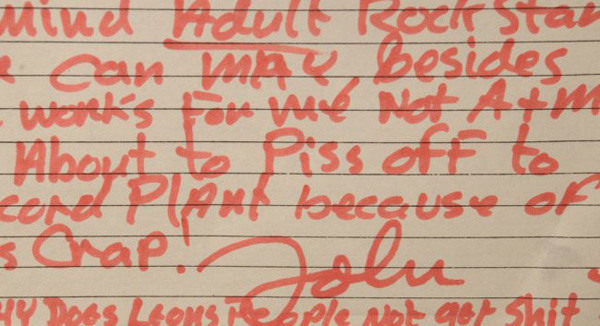 Mind Adult Rock Star
Can MAY besides
works For me Not A+M
About to Piss off to
cord PlAnt because of
s Crap! John
HY Does Leons People Not get Shit